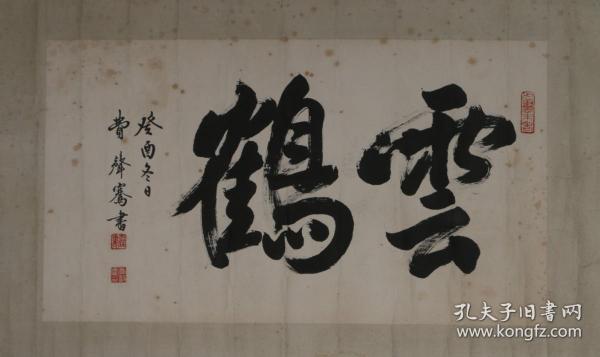 雲鶴
癸酉冬日
費聲騫書
孔夫子旧书网
www.kongfz.com